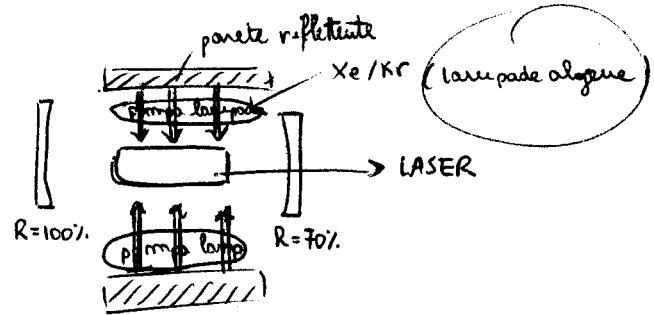 parete riflettente
Xe/Kr
(lampade alogene
pompa lampada
LASER
R=100%
R=70%
pompa lamp